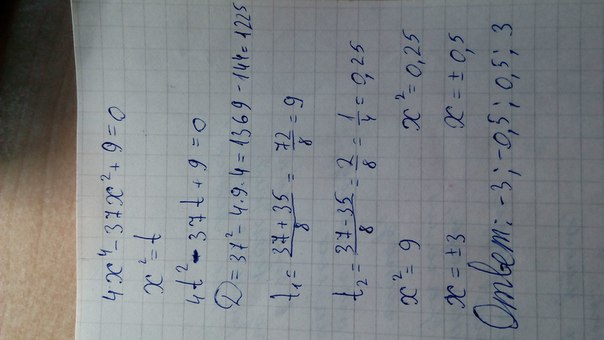 4x⁴ - 37x² + 9 = 0
x² = t
4t² - 37t + 9 = 0
D = 37² - 4·9·4 = 1369 - 144 = 1225
t₁ = (37 + 35)/8 = 72/8 = 9
t₂ = (37 - 35)/8 = 2/8 = 1/4 = 0,25
x² = 9 x² = 0,25
x = ±3 x = ±0,5
Ответ: -3; -0,5; 0,5; 3